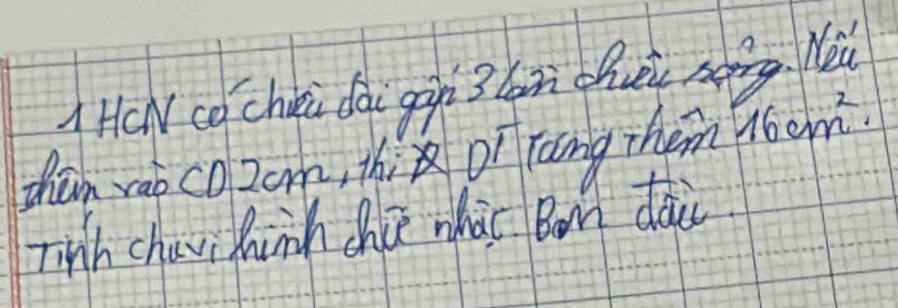 1 HCN có chiều dài gấp 3 lần chiều rộng. Nếu
thêm vào CD 2cm, thì DT tăng thêm 16cm².
Tính chu vi hình chữ nhật Ban đầu